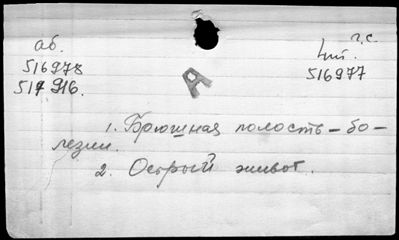 аб.
516978
517916.
г.с.
516977
А
1. Брюшная полость - бо-
лезни.
2. Острый живот.